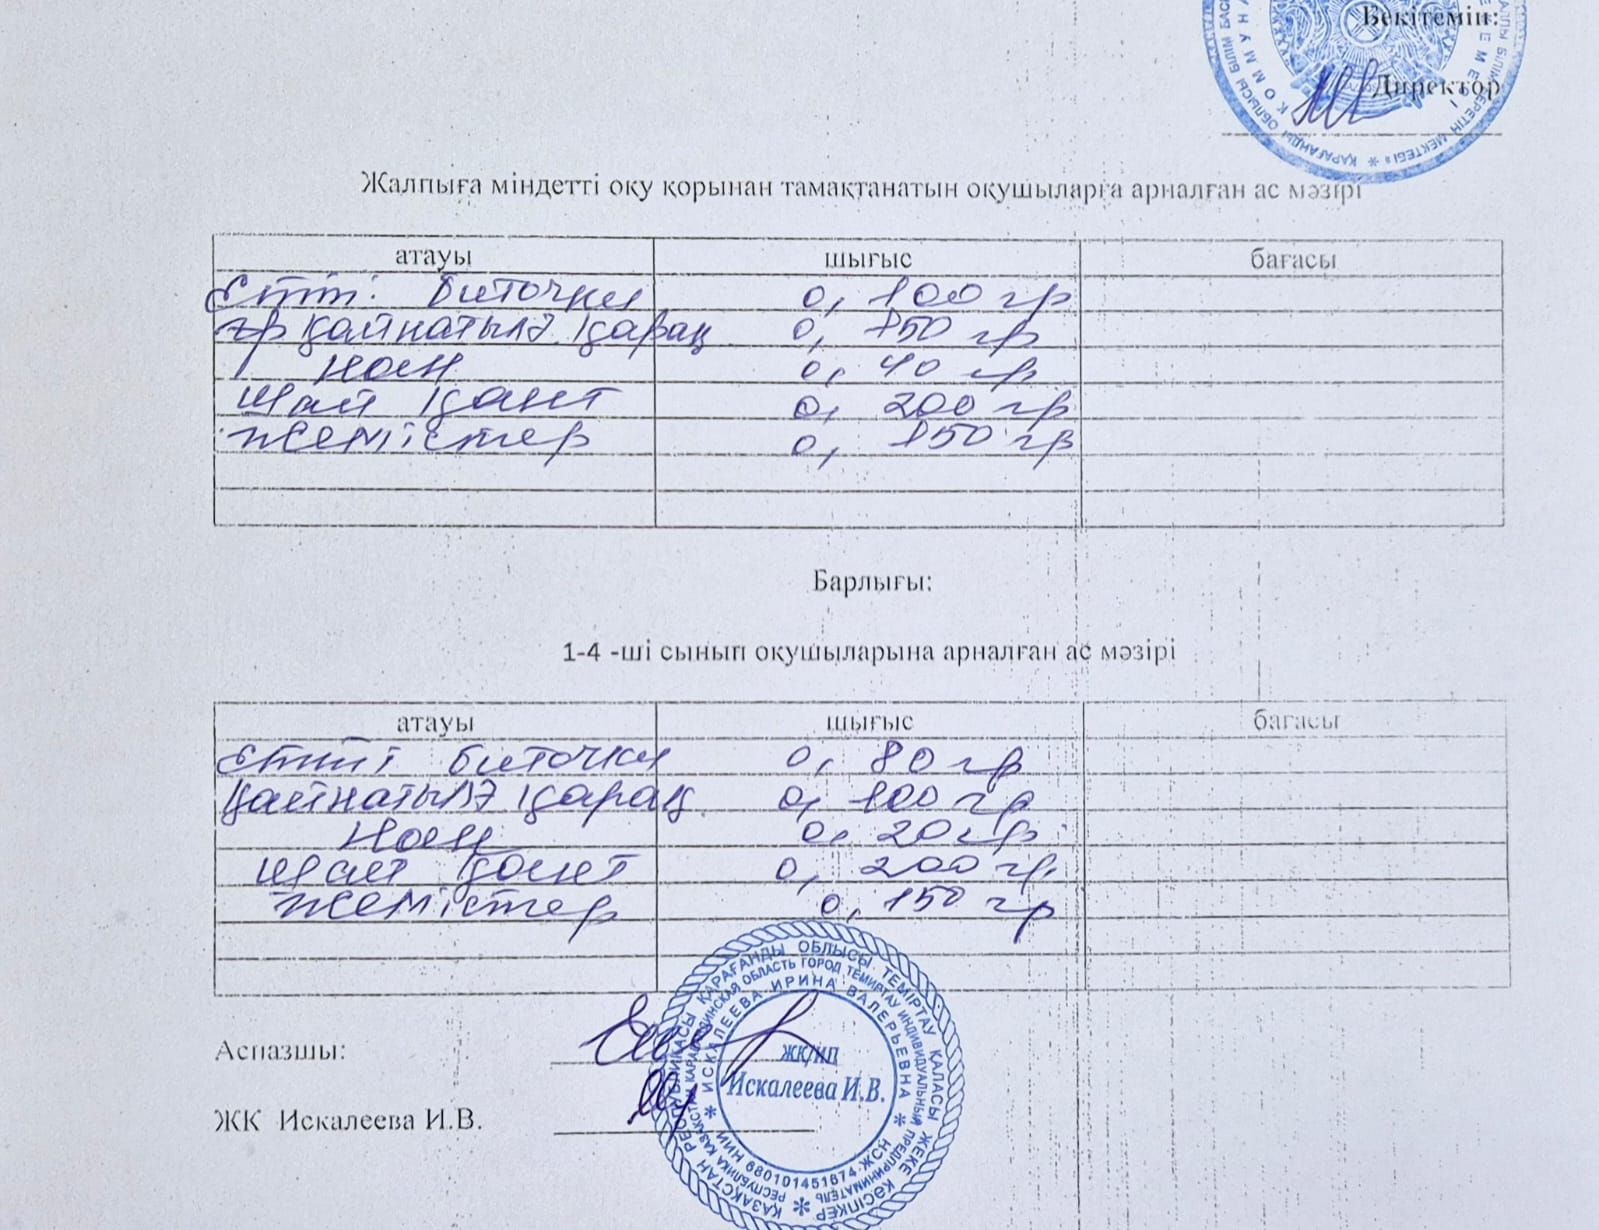 Бекітемін:
Директор
Жалпыға міндетті оқу қорынан тамақтанатын оқушыларға арналған ас мәзірі
атауы шығыс бағасы
Етті биточки 0, 100 гр
гр қайнатылғ қарақ 0, 150 гр
Нан 0, 40 гр
шай қант 0, 200 гр
жемістер 0, 150 гр
Барлығы:
1-4 -ші сынып оқушыларына арналған ас мәзірі
атауы шығыс бағасы
Етті биточки 0, 80 гр
қайнатылғ қарақ 0, 100 гр
Нан 0, 20 гр
шай қант 0, 200 гр
жемістер 0, 150 гр
Аспазшы:
ЖК Искалеева И.В.
ҚАЗАҚСТАН РЕСПУБЛИКАСЫ ҚАРАҒАНДЫ ОБЛЫСЫ ТЕМІРТАУ ҚАЛАСЫ ЖЕКЕ КӘСІПКЕР
РЕСПУБЛИКА КАЗАХСТАН КАРАГАНДИНСКАЯ ОБЛАСТЬ ГОРОД ТЕМИРТАУ ИНДИВИДУАЛЬНЫЙ ПРЕДПРИНИМАТЕЛЬ
ИСКАЛЕЕВА ИРИНА ВАЛЕРЬЕВНА
ИИН 680101451674 ЖСН
ЖК/ИП
Искалеева И.В.